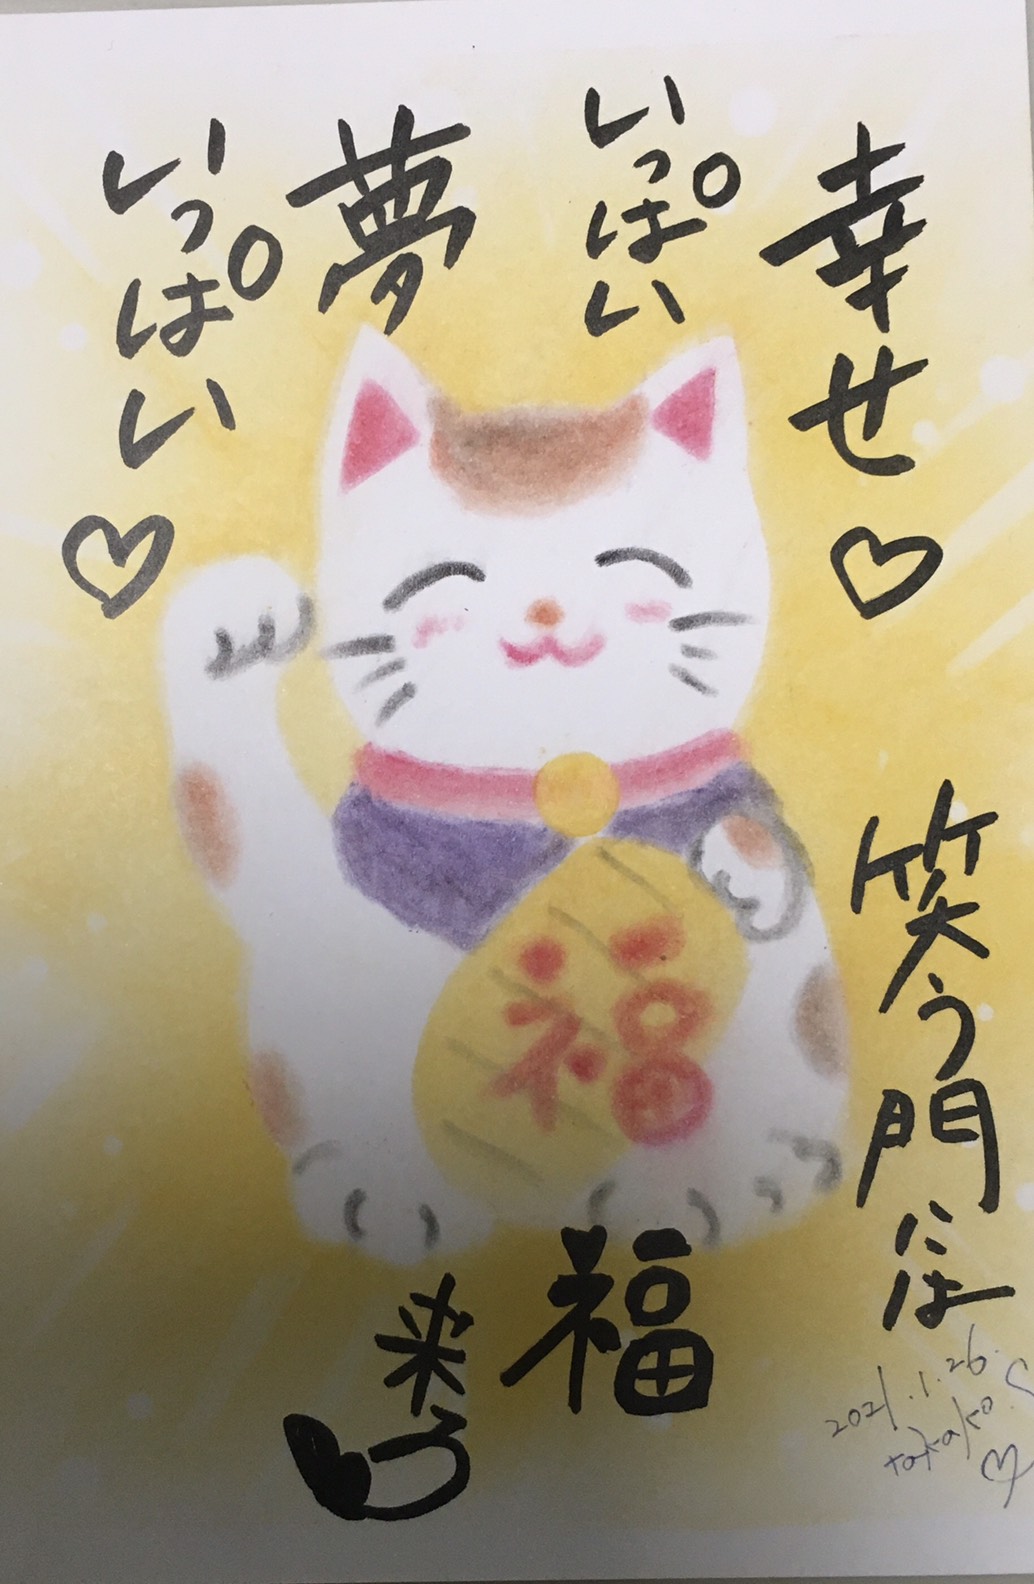 幸せ♡
いっぱい
夢
いっぱい♡
笑う門には
福
来る
福
2021.1.26.
takako.S
♡